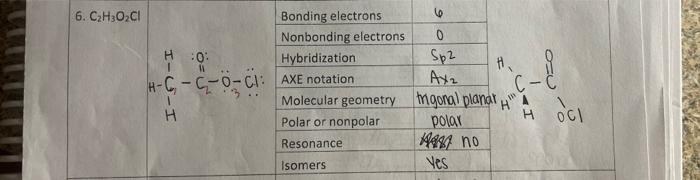 6. C₂H₃O₂Cl
H :O:
H-C₁-C₂-O₃-Cl:
H
Bonding electrons 6
Nonbonding electrons 0
Hybridization Sp2
AXE notation Ax2
Molecular geometry trigonal planar
Polar or nonpolar polar
Resonance no
Isomers Yes
H O
C-C
H''' H OCl